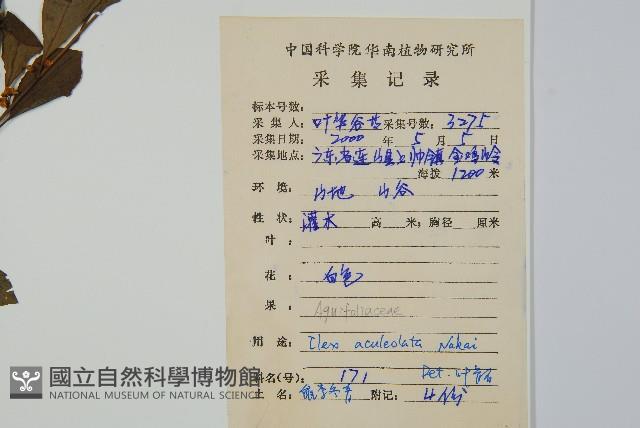 中国科学院华南植物研究所
采集记录
标本号数:
采集人: 叶华谷 采集号数: 3275
采集日期: 2000 年 5 月 5 日
采集地点: 广东省连山县上帅镇金鸡岭
海拨 1200 米
环境: 山地 山谷
性状: 灌木 高 米; 胸径 厘米
叶:
花: 白色
果: Aquifoliaceae
用途: Ilex aculeolata Nakai
科名(号): 171 Det. 叶华谷
土名: 附记: 4份
國立自然科學博物館
NATIONAL MUSEUM OF NATURAL SCIENCE